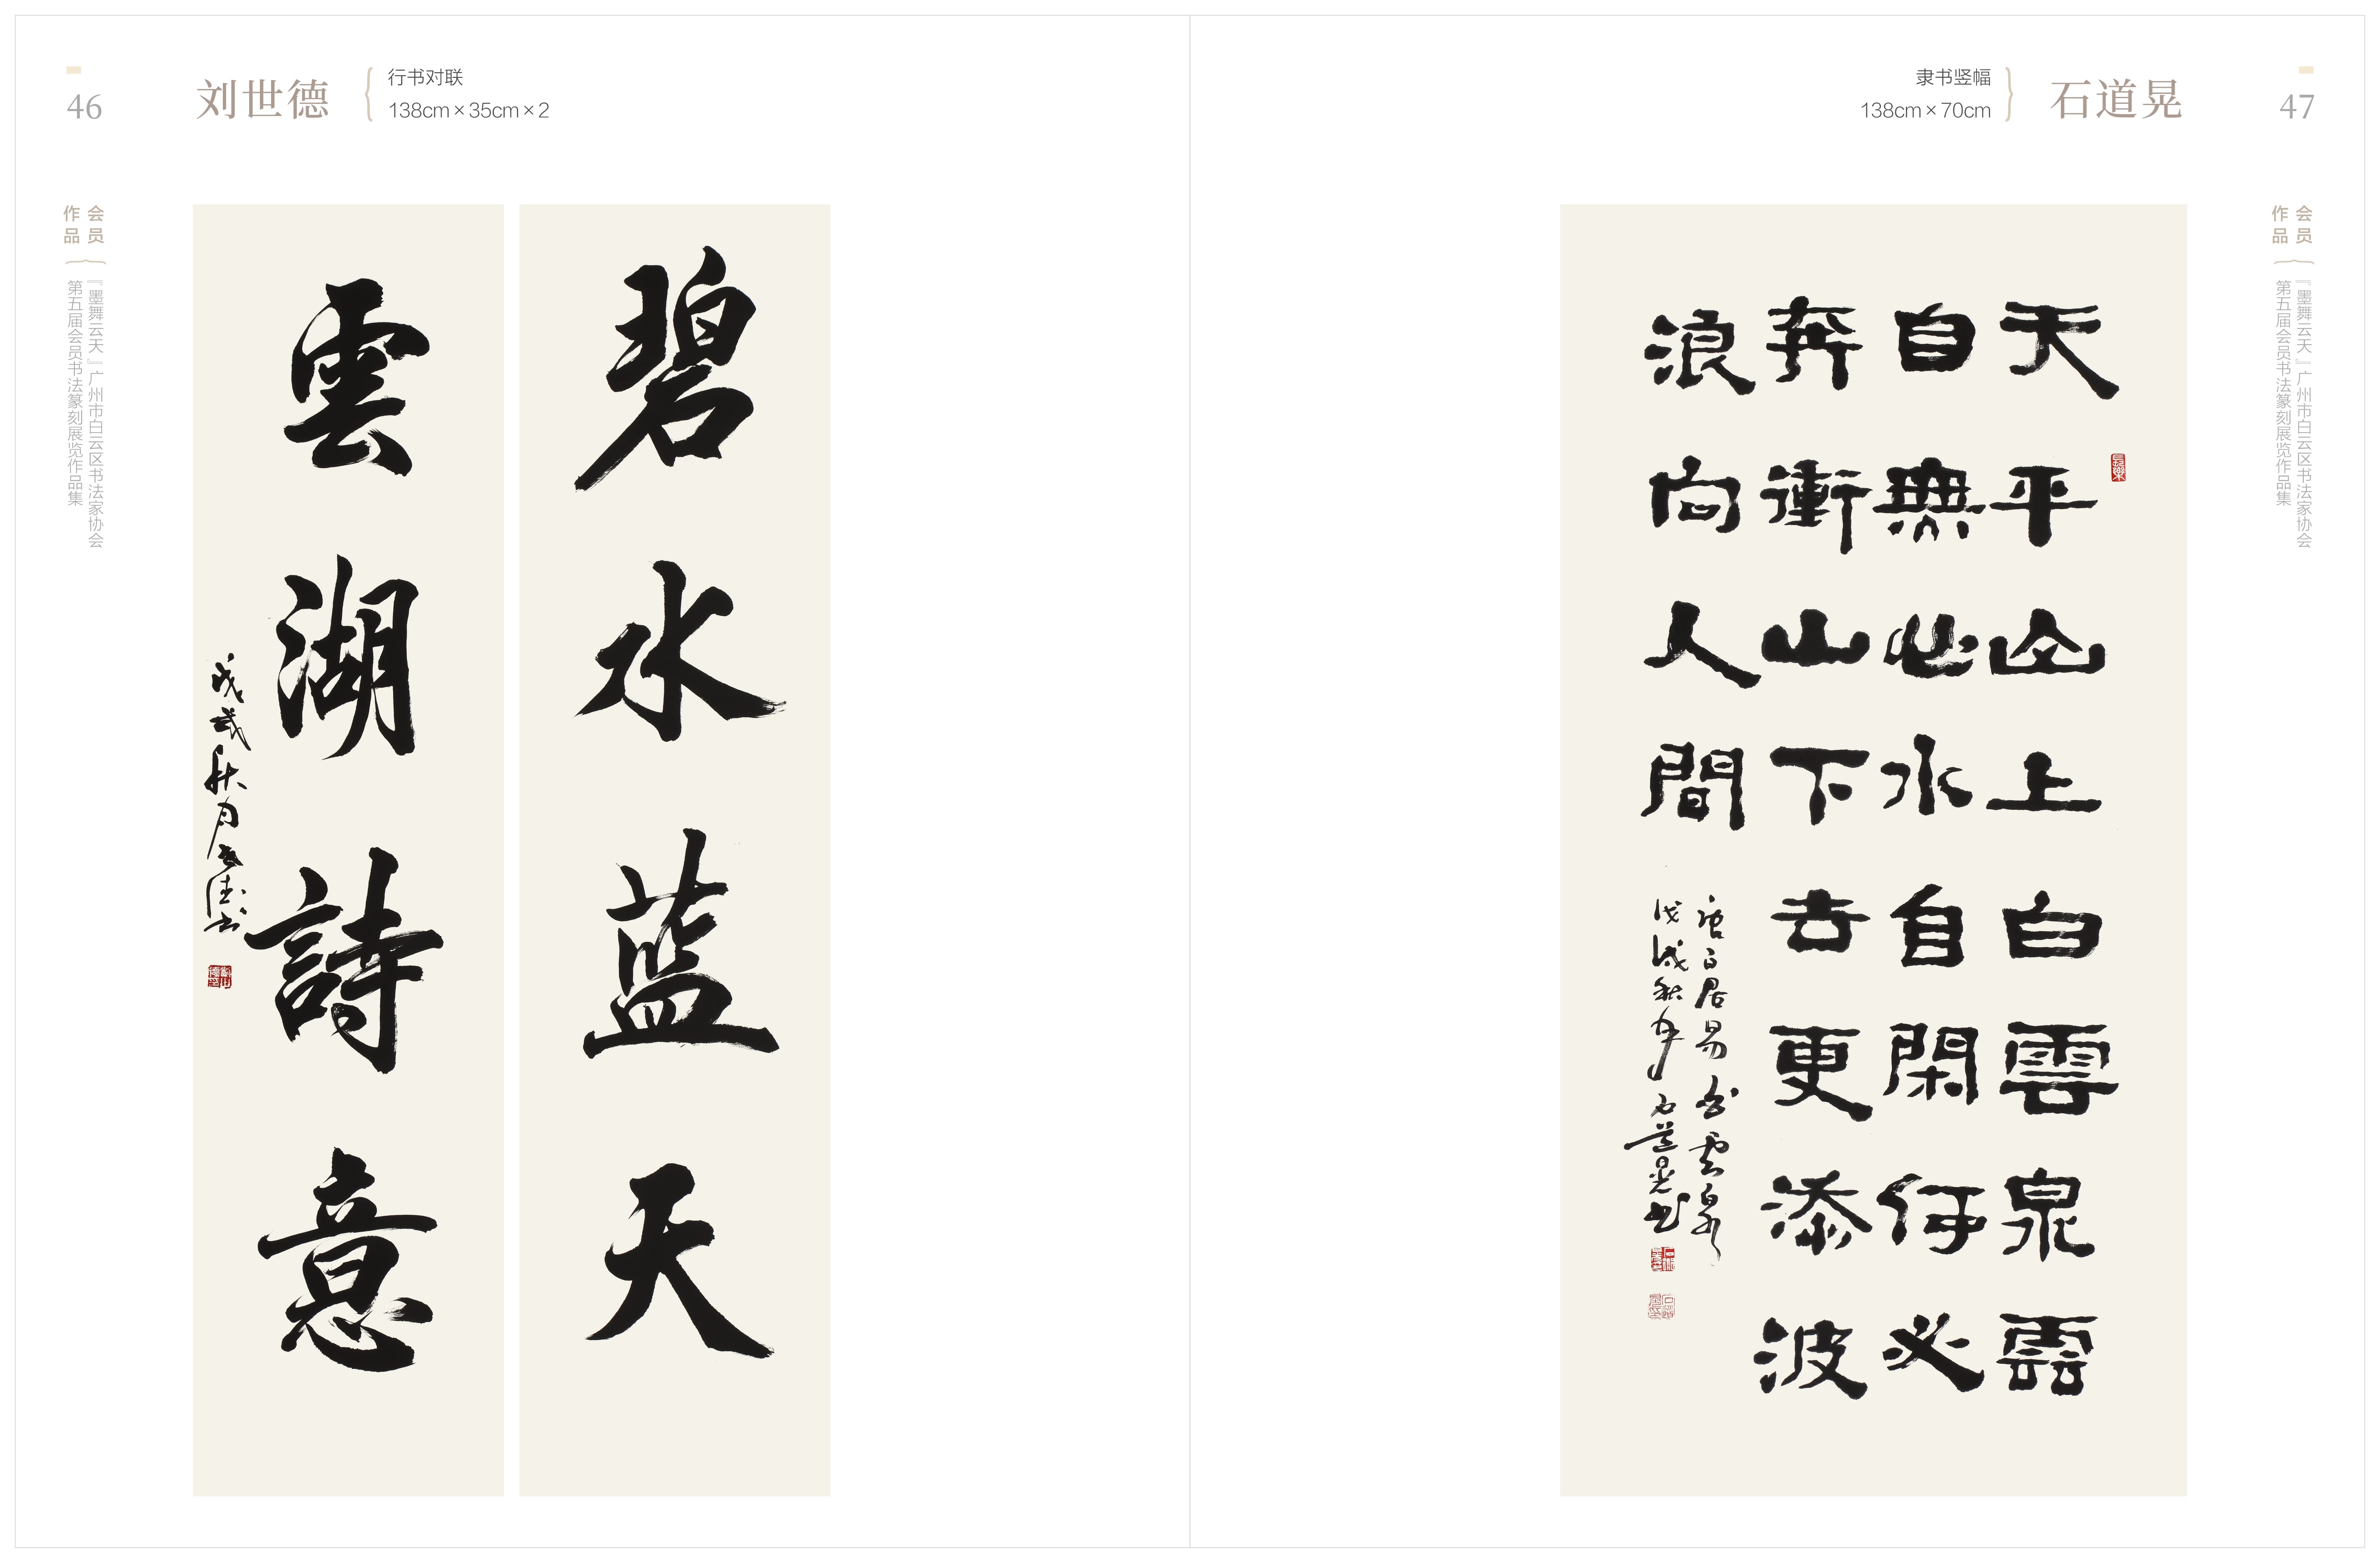 46
刘世德
行书对联
138cm×35cm×2
会员
作品
『墨舞云天』广州市白云区书法家协会
第五届会员书法篆刻展览作品集
碧水蓝天
雲湖詩意
戊戌秋月世德书
47
石道晃
隶书竖幅
138cm×70cm
会员
作品
『墨舞云天』广州市白云区书法家协会
第五届会员书法篆刻展览作品集
天平山上白雲泉雲
自無心水自閑何必
奔衝山下去更添波
浪向人間
唐白居易白雲泉
戊戌秋月石道晃书
長樂